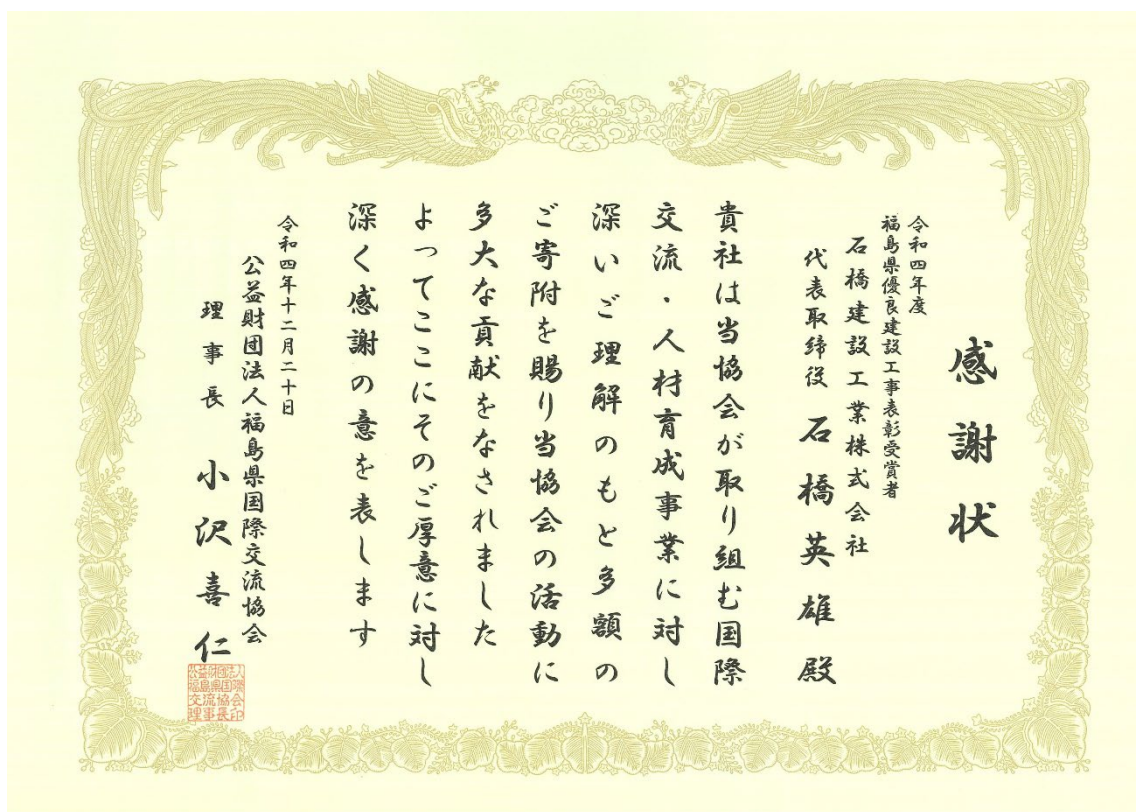 感謝状
令和四年度
福島県優良建設工事表彰受賞者
石橋建設工業株式会社
代表取締役 石橋英雄 殿
貴社は当協会が取り組む国際
交流・人材育成事業に対し
深いご理解のもと多額の
ご寄附を賜り当協会の活動に
多大な貢献をなされました
よってここにそのご厚意に対し
深く感謝の意を表します
令和四年十二月二十日
公益財団法人福島県国際交流協会
理事長 小沢喜仁